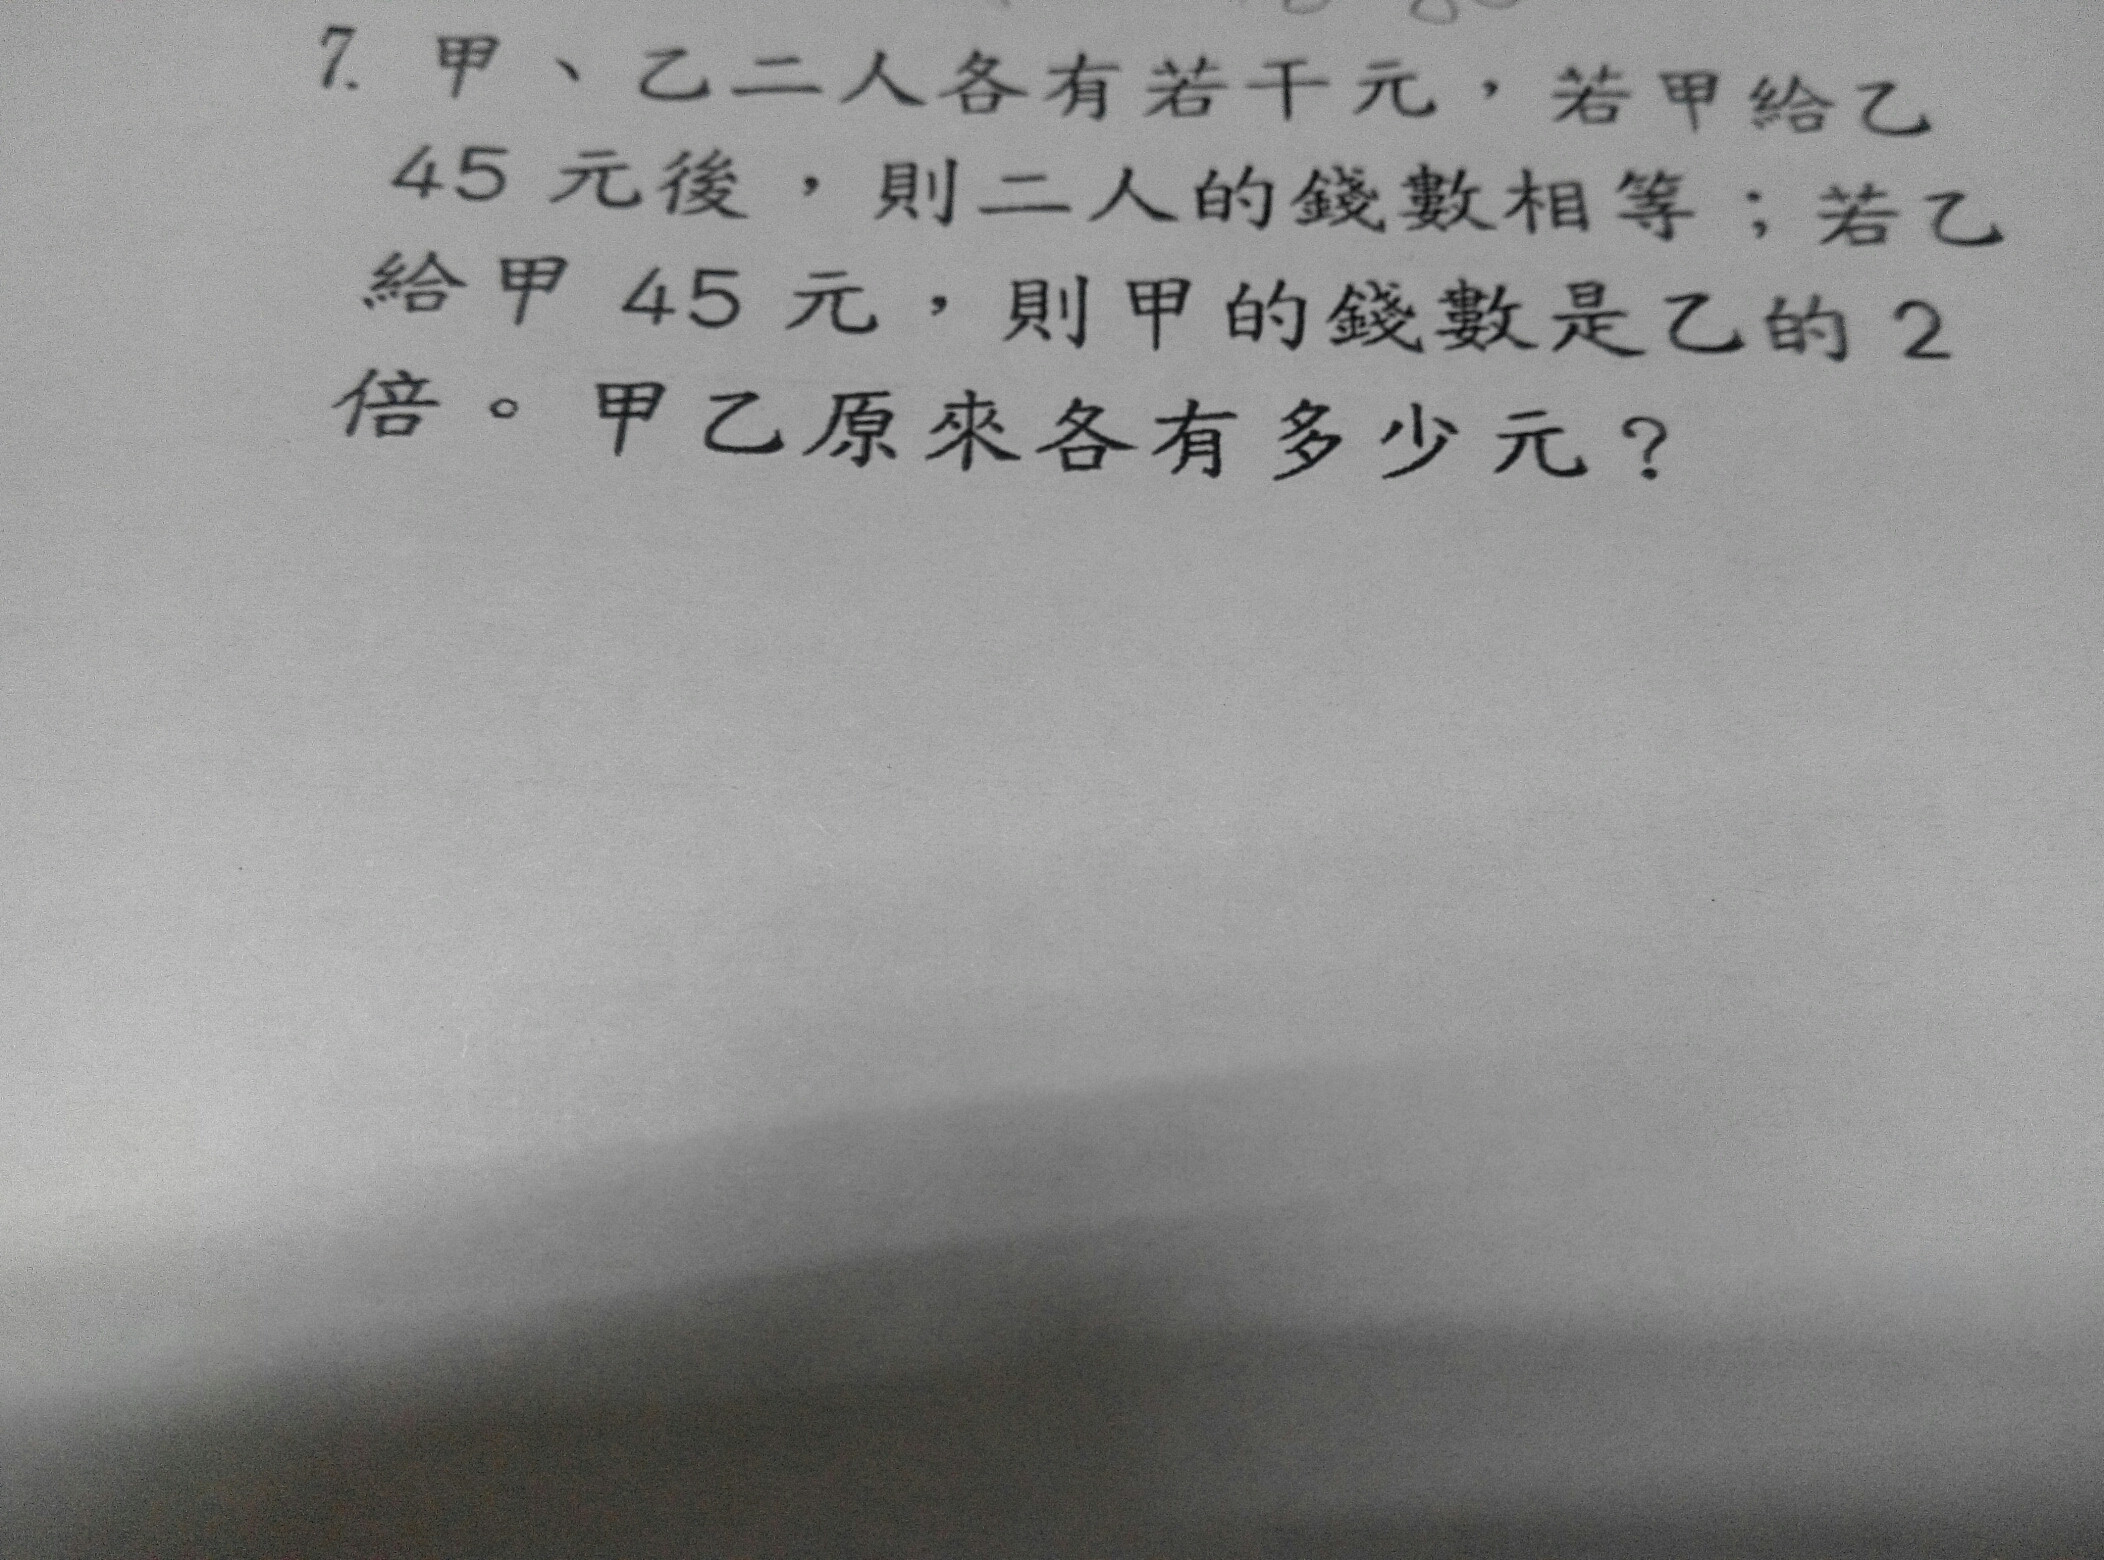 7. 甲、乙二人各有若干元,若甲給乙
45 元後,則二人的錢數相等;若乙
給甲 45 元,則甲的錢數是乙的 2
倍。甲乙原來各有多少元?